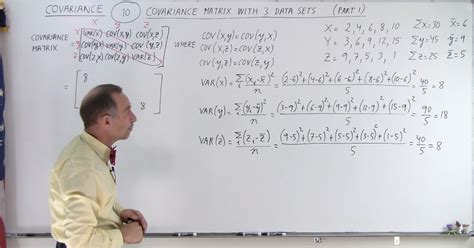 COVARIANCE 10 COVARIANCE MATRIX WITH 3 DATA SETS (PART 1)
x y z
COVARIANCE MATRIX =
x VAR(x) COV(x,y) COV(x,z)
y COV(y,x) VAR(y) COV(y,z)
z COV(z,x) COV(z,y) VAR(z)
= [ 8
8 ]
WHERE
COV(x,y)=COV(y,x)
COV(x,z)=COV(z,x)
COV(y,z)=COV(z,y)
X = 2, 4, 6, 8, 10 Σx=30 x̄=6
Y = 3, 6, 9, 12, 15 Σy=45 ȳ=9
Z = 9, 7, 5, 3, 1 Σz=25 z̄=5
VAR(x) = Σ(xᵢ-x̄)²/n = (2-6)²+(4-6)²+(6-6)²+(8-6)²+(10-6)²/5 = 40/5 = 8
VAR(y) = Σ(yᵢ-ȳ)²/n = (3-9)²+(6-9)²+(9-9)²+(12-9)²+(15-9)²/5 = 90/5 = 18
VAR(z) = Σ(zᵢ-z̄)²/n = (9-5)²+(7-5)²+(5-5)²+(3-5)²+(1-5)²/5 = 40/5 = 8